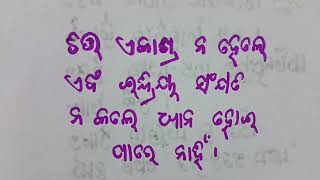 ଚିତ୍ତ ଏକାଗ୍ର ନ ହେଲେ
ଏବଂ ଇନ୍ଦ୍ରିୟ ସଂଯତ
ନ କଲେ ଧ୍ୟାନ ହୋଇ
ପାରେ ନାହିଁ।